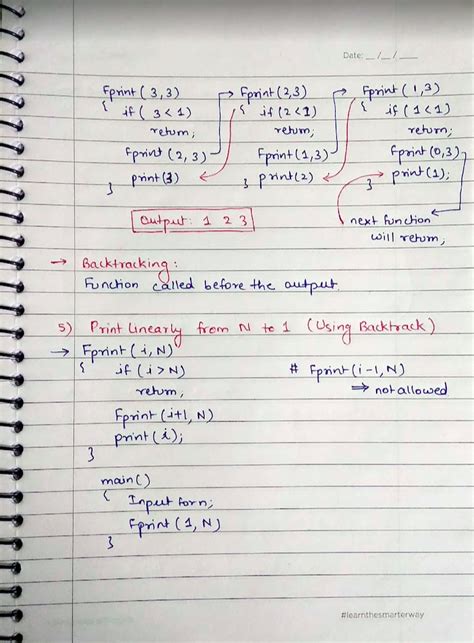 Date: __/__/____
Fprint(3,3) Fprint(2,3) Fprint(1,3)
{ if(3<1) { if(2<1) { if(1<1)
return; return; return;
Fprint(2,3) Fprint(1,3) Fprint(0,3)
print(3) print(2) print(1);
} } }
Output: 1 2 3
next function
will return;
→ Backtracking:
Function called before the output.
5) Print Linearly from N to 1 (Using Backtrack)
→ Fprint(i,N)
{ if(i>N) # Fprint(i-1,N)
return, ⇒ not allowed
Fprint(i+1,N)
print(i);
}
main()
{ Input for n;
Fprint(1,N)
}
#learnthesmarterway